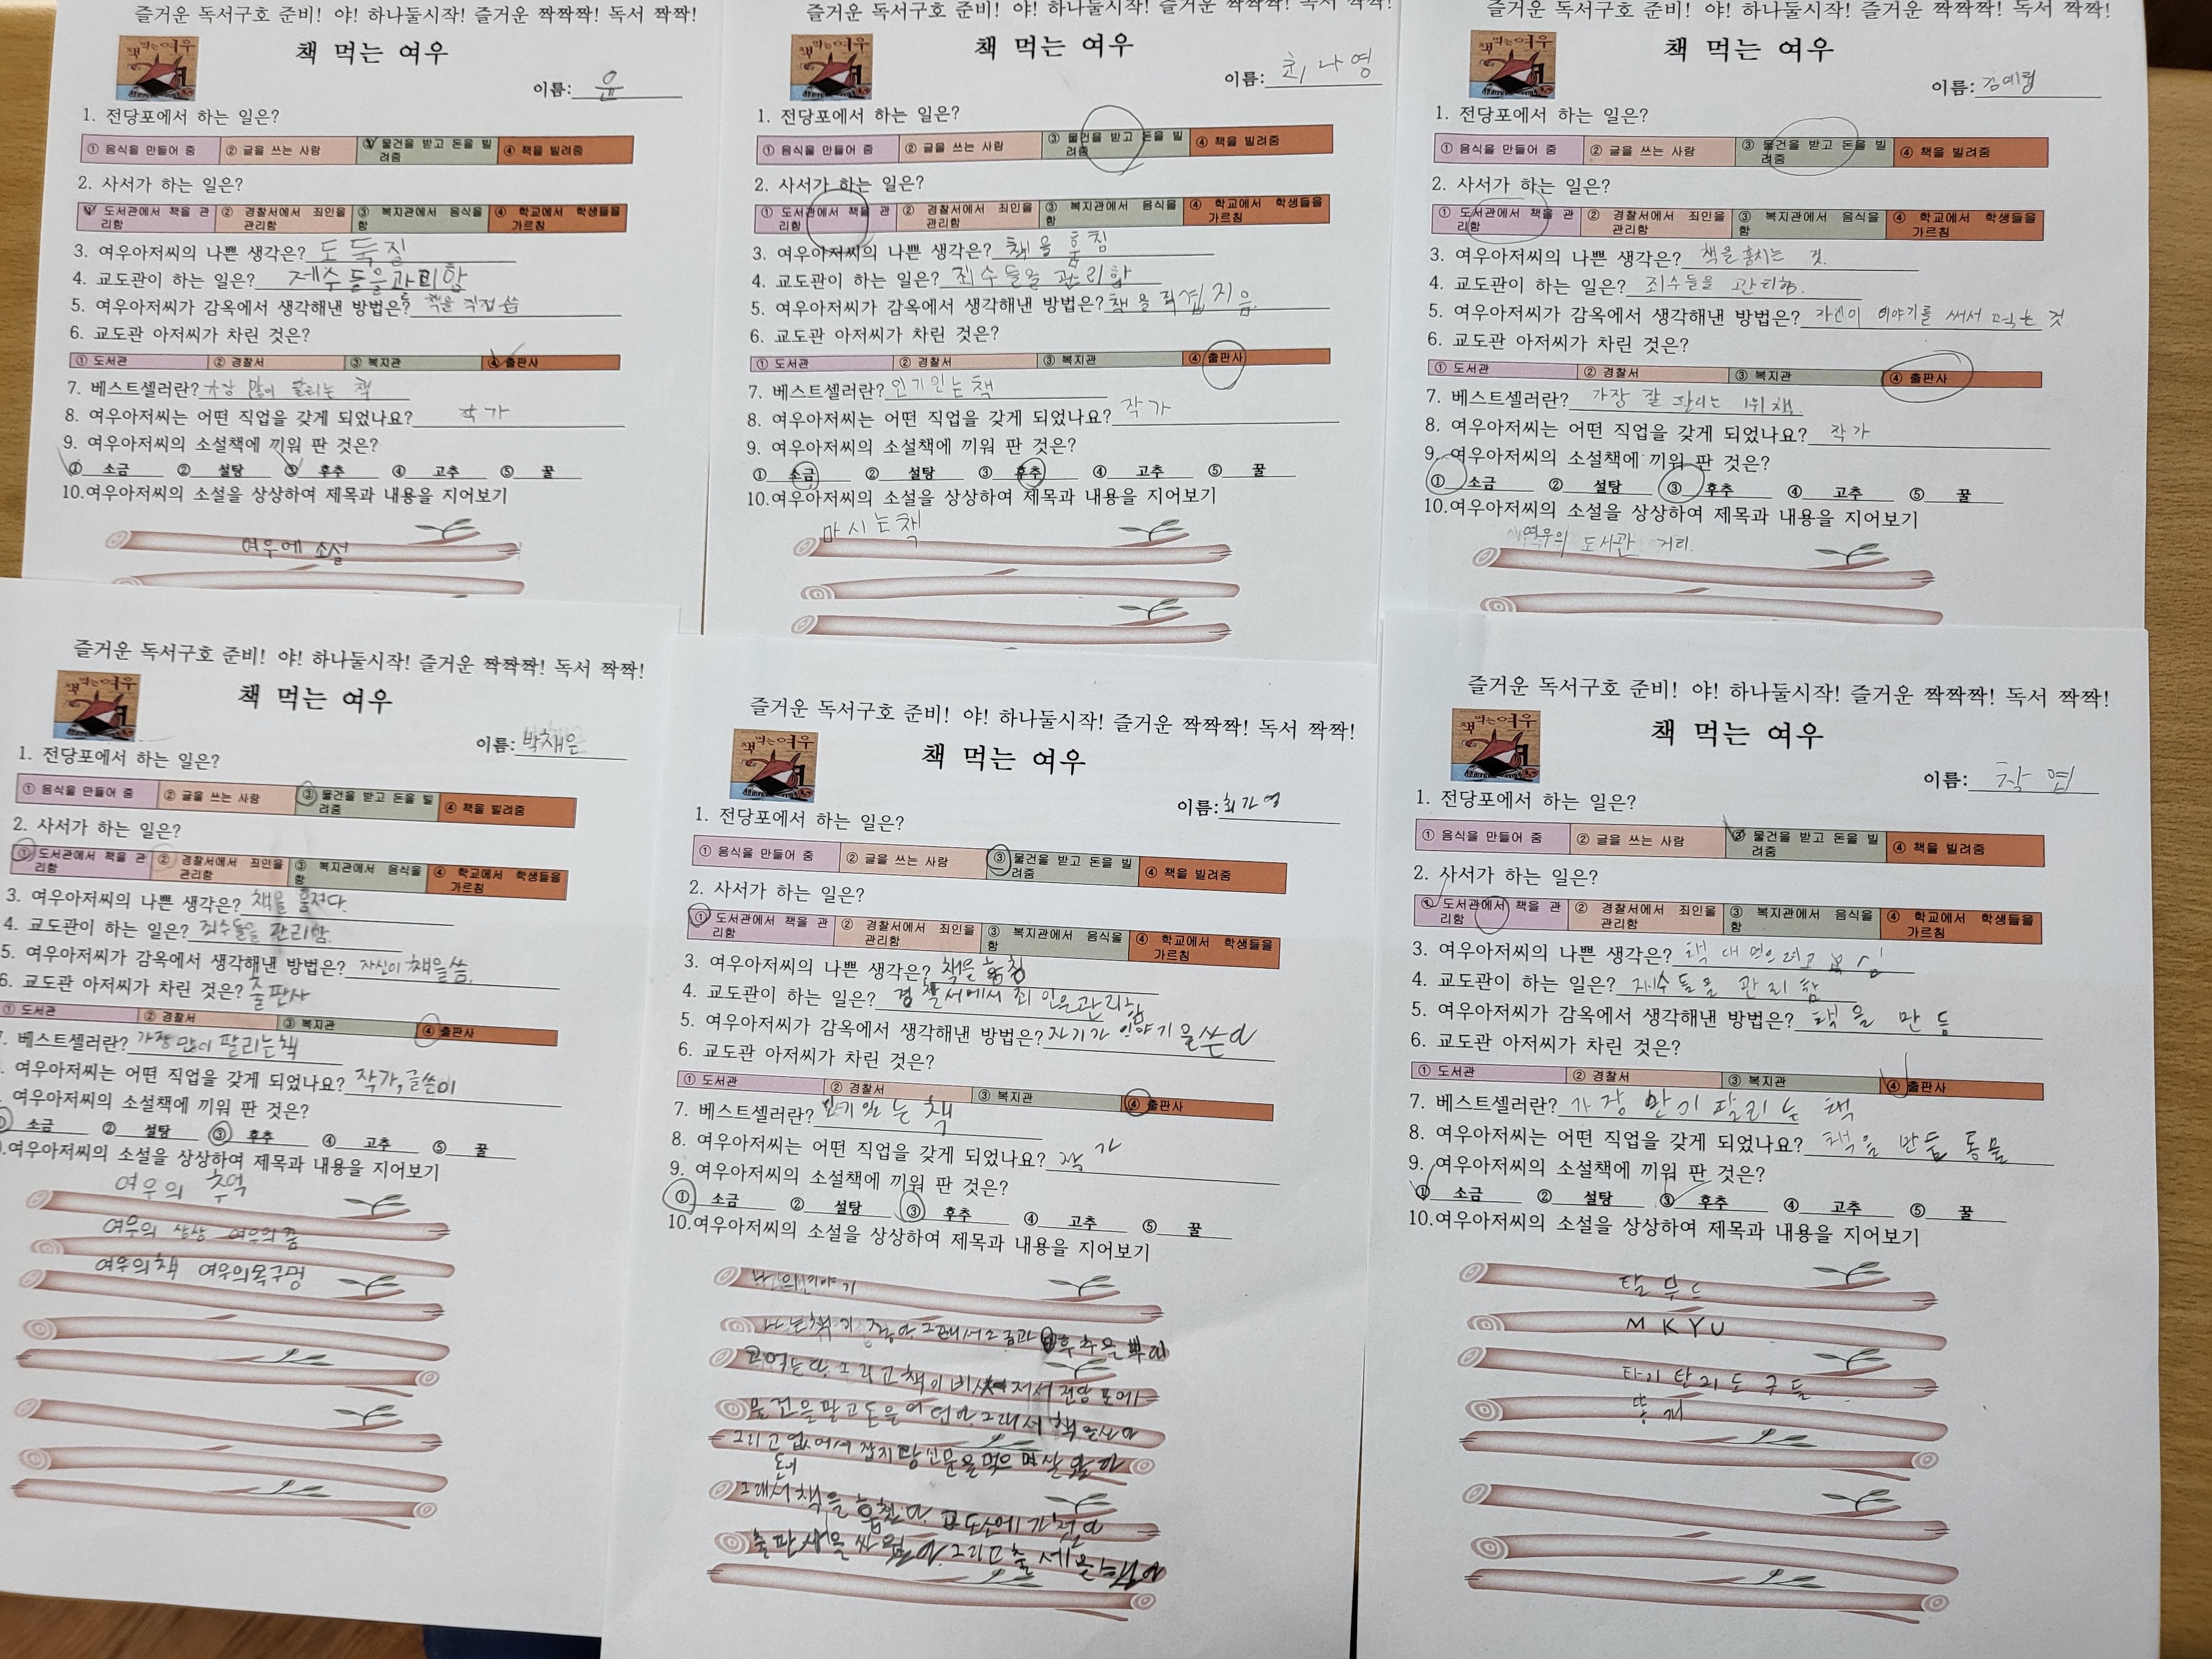 즐거운 독서구호 준비! 야! 하나둘시작! 즐거운 짝짝짝! 독서 짝짝!
책 먹는 여우
책 먹는 여우
이름: 윤
1. 전당포에서 하는 일은?
① 음식을 만들어 줌 ② 글을 쓰는 사람 ③ 물건을 받고 돈을 빌려줌 ④ 책을 빌려줌
2. 사서가 하는 일은?
① 도서관에서 책을 관리함 ② 경찰서에서 죄인을 관리함 ③ 복지관에서 음식을 함 ④ 학교에서 학생들을 가르침
3. 여우아저씨의 나쁜 생각은? 도둑질
4. 교도관이 하는 일은? 제수들을관리함
5. 여우아저씨가 감옥에서 생각해낸 방법은? 책을 직접 씀
6. 교도관 아저씨가 차린 것은?
① 도서관 ② 경찰서 ③ 복지관 ④ 출판사
7. 베스트셀러란? 가장 많이 팔리는 책
8. 여우아저씨는 어떤 직업을 갖게 되었나요? 작가
9. 여우아저씨의 소설책에 끼워 판 것은?
① 소금 ② 설탕 ③ 후추 ④ 고추 ⑤ 꿀
10.여우아저씨의 소설을 상상하여 제목과 내용을 지어보기
여우에 소설
즐거운 독서구호 준비! 야! 하나둘시작! 즐거운 짝짝짝! 독서 짝짝!
책 먹는 여우
책 먹는 여우
이름: 최나영
1. 전당포에서 하는 일은?
① 음식을 만들어 줌 ② 글을 쓰는 사람 ③ 물건을 받고 돈을 빌려줌 ④ 책을 빌려줌
2. 사서가 하는 일은?
① 도서관에서 책을 관리함 ② 경찰서에서 죄인을 관리함 ③ 복지관에서 음식을 함 ④ 학교에서 학생들을 가르침
3. 여우아저씨의 나쁜 생각은? 책을 훔침
4. 교도관이 하는 일은? 죄수들을 관리함
5. 여우아저씨가 감옥에서 생각해낸 방법은? 책을 지음
6. 교도관 아저씨가 차린 것은?
① 도서관 ② 경찰서 ③ 복지관 ④ 출판사
7. 베스트셀러란? 인기있는책
8. 여우아저씨는 어떤 직업을 갖게 되었나요? 작가
9. 여우아저씨의 소설책에 끼워 판 것은?
① 소금 ② 설탕 ③ 후추 ④ 고추 ⑤ 꿀
10.여우아저씨의 소설을 상상하여 제목과 내용을 지어보기
마시는책
즐거운 독서구호 준비! 야! 하나둘시작! 즐거운 짝짝짝! 독서 짝짝!
책 먹는 여우
책 먹는 여우
이름: 김예림
1. 전당포에서 하는 일은?
① 음식을 만들어 줌 ② 글을 쓰는 사람 ③ 물건을 받고 돈을 빌려줌 ④ 책을 빌려줌
2. 사서가 하는 일은?
① 도서관에서 책을 관리함 ② 경찰서에서 죄인을 관리함 ③ 복지관에서 음식을 함 ④ 학교에서 학생들을 가르침
3. 여우아저씨의 나쁜 생각은? 책을 훔치는 것.
4. 교도관이 하는 일은? 죄수들을 관리함.
5. 여우아저씨가 감옥에서 생각해낸 방법은? 자신이 이야기를 써서 먹는 것
6. 교도관 아저씨가 차린 것은?
① 도서관 ② 경찰서 ③ 복지관 ④ 출판사
7. 베스트셀러란? 가장 잘 팔리는 1위 책
8. 여우아저씨는 어떤 직업을 갖게 되었나요? 작가
9. 여우아저씨의 소설책에 끼워 판 것은?
① 소금 ② 설탕 ③ 후추 ④ 고추 ⑤ 꿀
10.여우아저씨의 소설을 상상하여 제목과 내용을 지어보기
여우의 도서관 거리.
즐거운 독서구호 준비! 야! 하나둘시작! 즐거운 짝짝짝! 독서 짝짝!
책 먹는 여우
책 먹는 여우
이름: 박채은
1. 전당포에서 하는 일은?
① 음식을 만들어 줌 ② 글을 쓰는 사람 ③ 물건을 받고 돈을 빌려줌 ④ 책을 빌려줌
2. 사서가 하는 일은?
① 도서관에서 책을 관리함 ② 경찰서에서 죄인을 관리함 ③ 복지관에서 음식을 함 ④ 학교에서 학생들을 가르침
3. 여우아저씨의 나쁜 생각은? 책을 훔저다.
4. 교도관이 하는 일은? 죄수들을 관리함.
5. 여우아저씨가 감옥에서 생각해낸 방법은? 자신이 책을씀.
6. 교도관 아저씨가 차린 것은? 출판사
① 도서관 ② 경찰서 ③ 복지관 ④ 출판사
7. 베스트셀러란? 가장 많이 팔리는책
여우아저씨는 어떤 직업을 갖게 되었나요? 작가,글쓴이
여우아저씨의 소설책에 끼워 판 것은?
① 소금 ② 설탕 ③ 후추 ④ 고추 ⑤ 꿀
.여우아저씨의 소설을 상상하여 제목과 내용을 지어보기
여우의 추억
여우의 상상 여우의꿈
여우의책 여우의목구멍
즐거운 독서구호 준비! 야! 하나둘시작! 즐거운 짝짝짝! 독서 짝짝!
책 먹는 여우
책 먹는 여우
이름: 최가영
1. 전당포에서 하는 일은?
① 음식을 만들어 줌 ② 글을 쓰는 사람 ③ 물건을 받고 돈을 빌려줌 ④ 책을 빌려줌
2. 사서가 하는 일은?
① 도서관에서 책을 관리함 ② 경찰서에서 죄인을 관리함 ③ 복지관에서 음식을 함 ④ 학교에서 학생들을 가르침
3. 여우아저씨의 나쁜 생각은? 책을 훔침
4. 교도관이 하는 일은? 경찰서에서 죄인을관리함
5. 여우아저씨가 감옥에서 생각해낸 방법은? 자기가 이야기을쓴다
6. 교도관 아저씨가 차린 것은?
① 도서관 ② 경찰서 ③ 복지관 ④ 출판사
7. 베스트셀러란? 인기있는 책
8. 여우아저씨는 어떤 직업을 갖게 되었나요? 작가
9. 여우아저씨의 소설책에 끼워 판 것은?
① 소금 ② 설탕 ③ 후추 ④ 고추 ⑤ 꿀
10.여우아저씨의 소설을 상상하여 제목과 내용을 지어보기
나의이야기
나는책이 좋아 그래서소금과 후추을 뿌리
고먹는다. 그리고책이비싸 져서 전당포에
물건을팔고돈을 그래서 책
그리고 없어서 잡지랑신문을먹으며살
그래서 책을 훔친다. 교도소에 가친다
출판사을 그리고 출세을
즐거운 독서구호 준비! 야! 하나둘시작! 즐거운 짝짝짝! 독서 짝짝!
책 먹는 여우
책 먹는 여우
이름: 연
1. 전당포에서 하는 일은?
① 음식을 만들어 줌 ② 글을 쓰는 사람 ③ 물건을 받고 돈을 빌려줌 ④ 책을 빌려줌
2. 사서가 하는 일은?
① 도서관에서 책을 관리함 ② 경찰서에서 죄인을 관리함 ③ 복지관에서 음식을 함 ④ 학교에서 학생들을 가르침
3. 여우아저씨의 나쁜 생각은?
4. 교도관이 하는 일은? 죄수들을 관리함
5. 여우아저씨가 감옥에서 생각해낸 방법은? 책을 만듬
6. 교도관 아저씨가 차린 것은?
① 도서관 ② 경찰서 ③ 복지관 ④ 출판사
7. 베스트셀러란? 가장 만이 팔리는 책
8. 여우아저씨는 어떤 직업을 갖게 되었나요? 책을 만듬 동물
9. 여우아저씨의 소설책에 끼워 판 것은?
① 소금 ② 설탕 ③ 후추 ④ 고추 ⑤ 꿀
10.여우아저씨의 소설을 상상하여 제목과 내용을 지어보기
탈무드
MKYU
타이탄의도구들
똥개